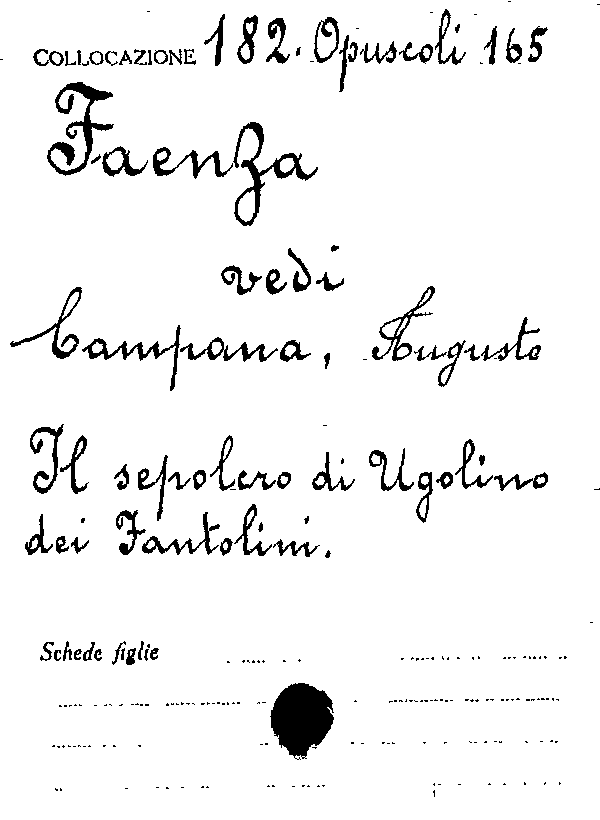 COLLOCAZIONE 182. Opuscoli 165
Faenza
vedi
Campana, Augusto
Il sepolcro di Ugolino
dei Fantolini.
Schede figlie